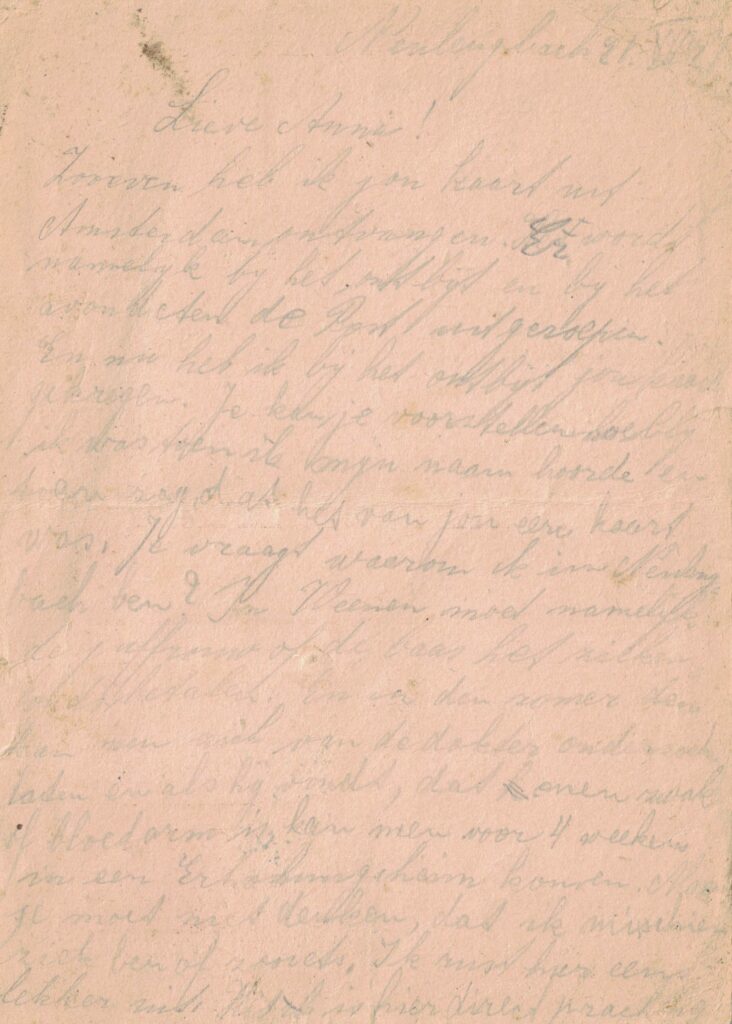 Neulengbach 21.
Lieve Anni!
Zoeven heb ik jou kaart uit
Amsterdam ontvangen. Er wordt
namelijk bij het ontbijt en bij het
avondeten de Post uitgeroepen.
En nu heb ik bij het ontbijt jou kaart
gekregen. Je kan je voorstellen hoe blij
ik was toen ik mijn naam hoorde en
toen zag dat het van jou een kaart
was. Je vraagt waarom ik in Neuleng-
bach ben? In Weenen moet namelijk
de juffrouw of de baas het zieken
betalen. En in den zomer dan
kan men zich van de dokter onderzoek
laten en als hij vindt, dat enen zwak
of bloedarm is, kan men voor 4 weeken
in een Erholungsheim komen. Maar
je moet niet denken, dat ik misschien
ziek ben of zoiets. Ik rust hier eens
lekker uit. is hier direct prachtig